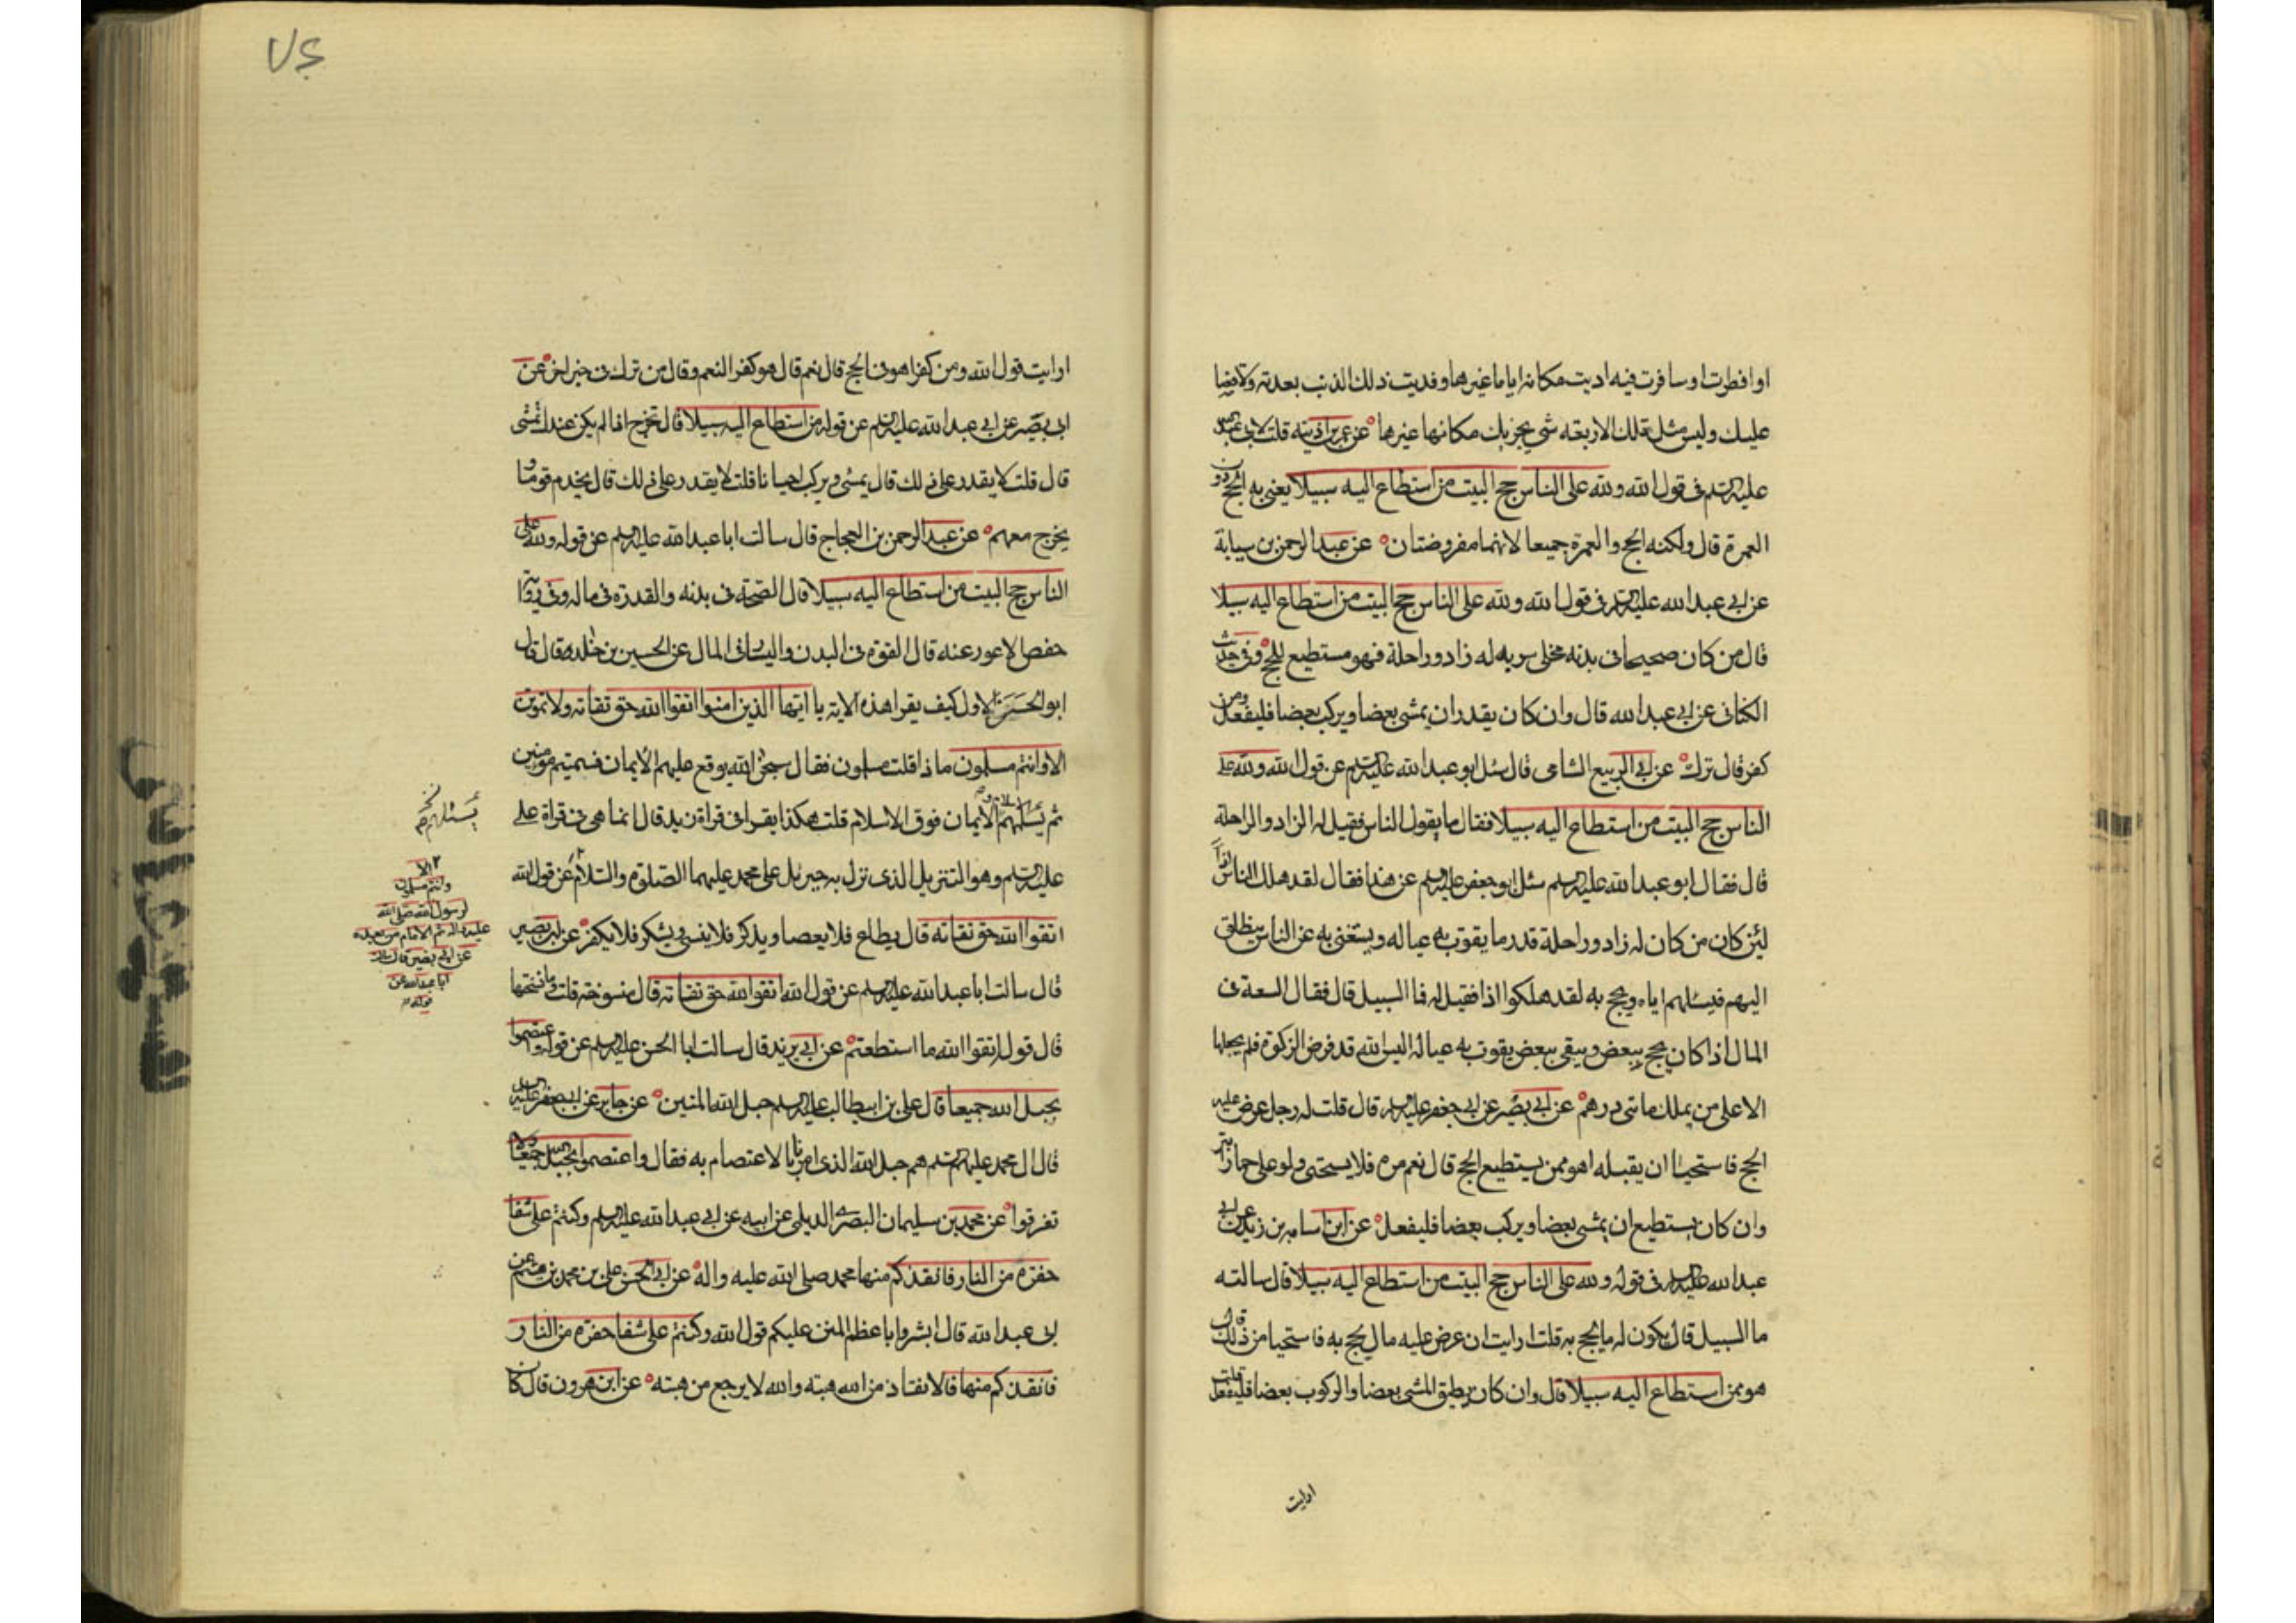 او افطرت او سافرت فيه اديت مكانه اياما غيرها وفديت ذلك الذنب بعدته ولا قضا
عليك وليس مثل تلك الاربعه شي يجزيك مكانها غيرها عن عمر بن اذينه قلت لابي عبد الله
عليه السلم في قول الله ولله على الناس حج البيت من استطاع اليه سبيلا يعني به الحج دون
العمرة قال ولكنه الحج والعمرة جميعا لانهما مفروضتان عن عبد الرحمن بن سيابة
عن ابي عبد الله عليه السلم في قول الله ولله على الناس حج البيت من استطاع اليه سبيلا
قال من كان صحيحا في بدنه مخلى سربه له زاد وراحلة فهو مستطيع للحج وفي حديث
الكناني عن ابي عبد الله قال وان كان يقدر ان يمشي بعضا ويركب بعضا فليفعل ومن
كفر قال ترك عن ابي الربيع الشامي قال سئل ابو عبد الله عليه السلم عن قول الله ولله على
الناس حج البيت من استطاع اليه سبيلا فقال ما يقول الناس فقيل له الزاد والراحلة
قال فقال ابو عبد الله عليه السلم سئل ابو جعفر عليه السلم عن هذا فقال لقد هلك الناس اذا
لئن كان من كان له زاد وراحلة قدر ما يقوت به عياله ويستغني به عن الناس ينطلق
اليهم فيسئلهم اياه ويحج به لقد هلكوا اذا فقيل له فما السبيل قال فقال السعة في
المال اذا كان يحج ببعض ويبقى ببعض يقوت به عياله اليس الله قد فرض الزكوة فلم يجعلها
الا على من يملك ماتي درهم عن ابي بصير عن ابي جعفر عليه السلم قال قلت له رجل عرض عليه
الحج فاستحيا ان يقبله اهو ممن يستطيع الحج قال نعم مره فلا يستحي ولو على حمار ابتر
وان كان يستطيع ان يمشي بعضا ويركب بعضا فليفعل عن ابن اسامه بن زيد عن ابي
عبد الله عليه السلم في قوله ولله على الناس حج البيت من استطاع اليه سبيلا قال سالته
ما السبيل قال يكون له ما يحج به قلت ارايت ان عرض عليه مال يحج به فاستحيا من ذلك قال
هو ممن استطاع اليه سبيلا قال وان كان يطيق المشي بعضا والركوب بعضا فليفعل قلت
ارايت
٧٤
ارايت قول الله ومن كفر اهو في الحج قال نعم قال هو كفر النعم وقال من ترك في خبر اخر عن
ابي بصير عن ابي عبد الله عليه السلم عن قوله من استطاع اليه سبيلا قال تخرج اذا لم يكن عندك تمشي
قال قلت لا يقدر على ذلك قال يمشي ويركب احيانا قلت لا يقدر على ذلك قال يخدم قوما و
يخرج معهم عن عبد الرحمن بن الحجاج قال سالت ابا عبد الله عليه السلم عن قوله ولله على
الناس حج البيت من استطاع اليه سبيلا قال الصحة في بدنه والقدرة في ماله وفي رواية
حفص الاعور عنه قال القوة في البدن واليسار في المال عن الحسين بن خلد قال قال
ابو الحسن الاول كيف يقرا هذه الاية يا ايها الذين امنوا اتقوا الله حق تقاته ولا تموتن
الا وانتم مسلمون ماذا قلت مسلمون فقال سبحن الله يوقع عليهم الايمان فسميتهم مومنين
ثم يسئلهم الاسلام والايمان فوق الاسلام قلت هكذا يقرا في قراة زيد قال انما هي في قراة علي
عليه السلم وهو التنزيل الذي نزل به جبرئيل على محمد عليهما الصلوة والسلام عن قول الله
اتقوا الله حق تقاته قال يطاع فلا يعصا ويذكر فلا ينسى ويشكر فلا يكفر عن ابي بصير
قال سالت ابا عبد الله عليه السلم عن قول الله اتقوا الله حق تقاته قال منسوخة قلت وما نسختها
قال قول اتقوا الله ما استطعتم عن ابي يزيد قال سالت ابا الحسن عليه السلم عن قوله واعتصموا
بحبل الله جميعا قال علي بن ابيطالب عليه السلم حبل الله المتين عن جابر عن ابي جعفر عليه السلم
قال ال محمد عليهم السلم هم حبل الله الذي امرنا بالاعتصام به فقال واعتصموا بحبل الله جميعا ولا
تفرقوا عن محمد بن سليمان البصري الديلمي عن ابيه عن ابي عبد الله عليه السلم وكنتم على شفا
حفرة من النار فانقذكم منها محمد صلى الله عليه واله عن ابي الحسن علي بن محمد بن ميثم عن
ابي عبد الله قال ابشروا باعظم المنن عليكم قول الله وكنتم على شفا حفرة من النار
فانقذكم منها فالانقاذ من الله هبته والله لا يرجع من هبته عن ابن هرون قال كان
يسئلهم
الا
وانتم مسلمون
لرسول الله صلى الله
عليه واله ثم الامام من بعده
عن ابي بصير قال سالت
ابا عبد الله عن
قوله